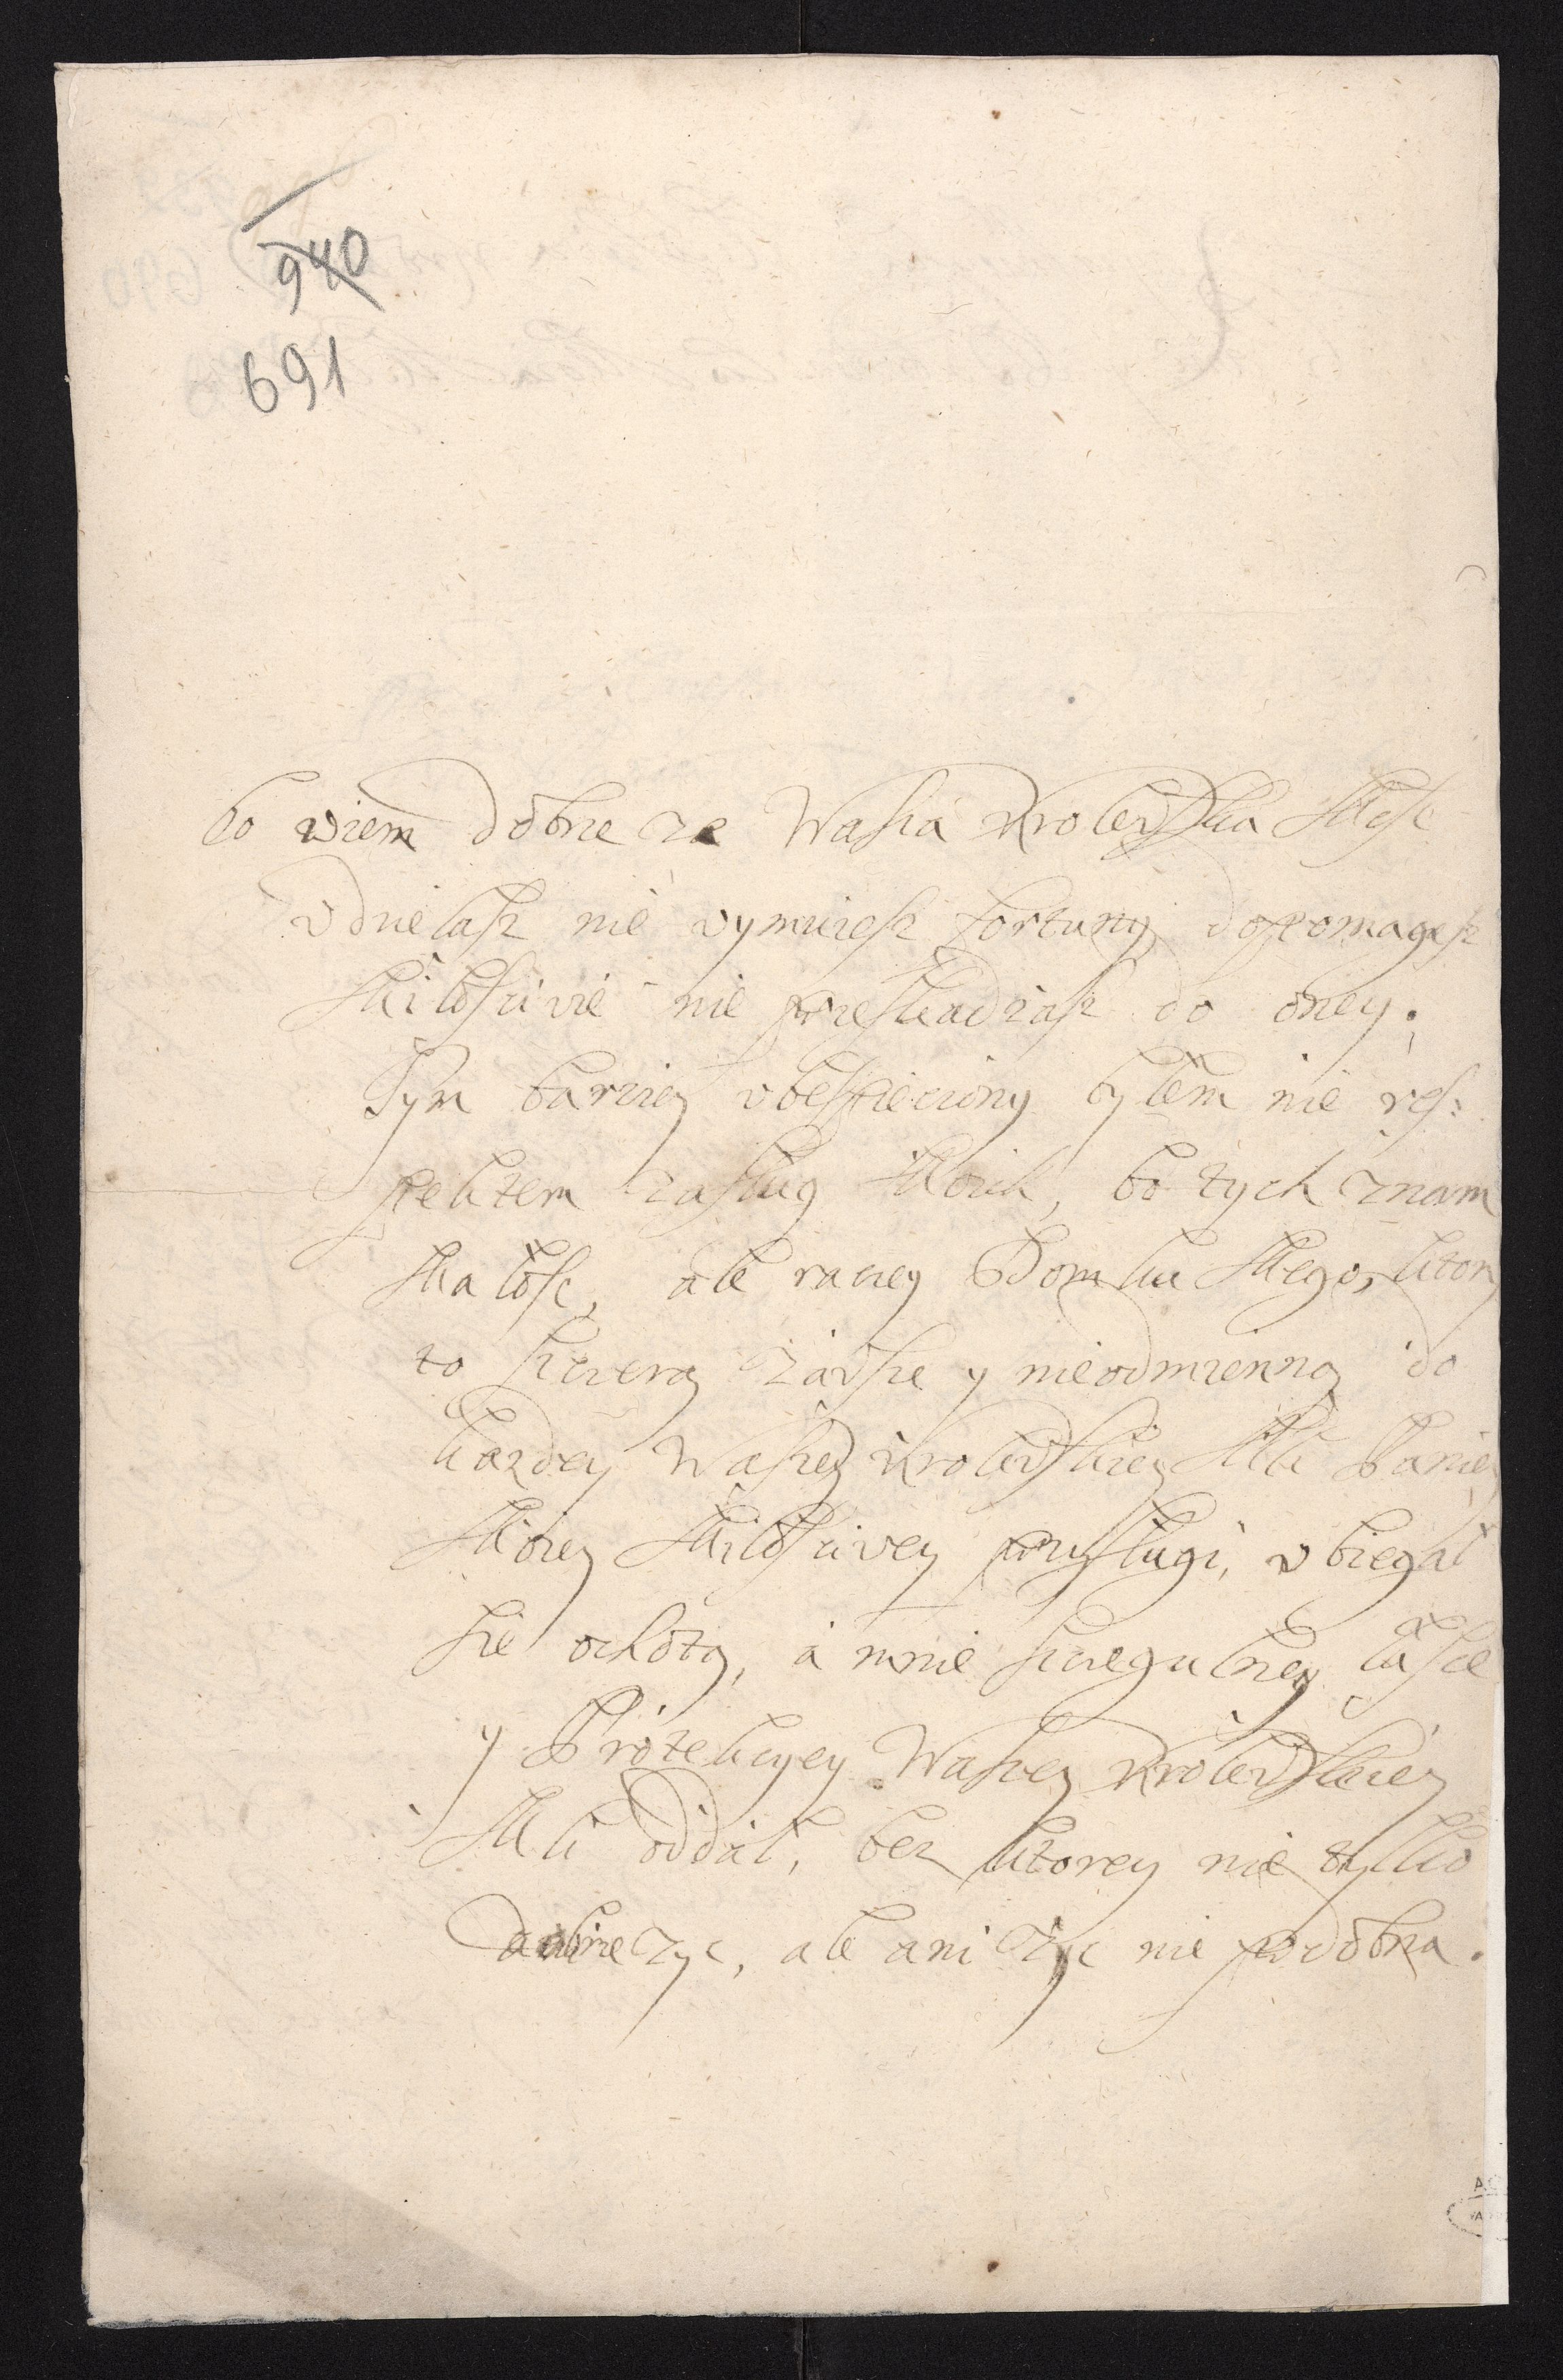 940
691
bo wiem dobrze ze Wasza Krolewska Mość
vdzielasz nie vymuiesz fortuny dopomagasz
Miłosciwie nie przeskadzasz do oney.
Tym barziey vbespieczony byłem nie res:
pektem zasług Moich, bo tych znam
Małosc, ale raczey Domku Mego, ktory
to szczerą zawsze y nieodmienną do
kazdey Waszey Krolewskiey Mci Paniey
Moiey Miłosciwey przysługi, vbiegał
sie ochotą, a mnie szczegulney łasce
y Protekcyey Waszey Krolewskiey
Mci oddał, bez ktorey nie tylko
dobrze zyc, ale ani zyc nie podobna.